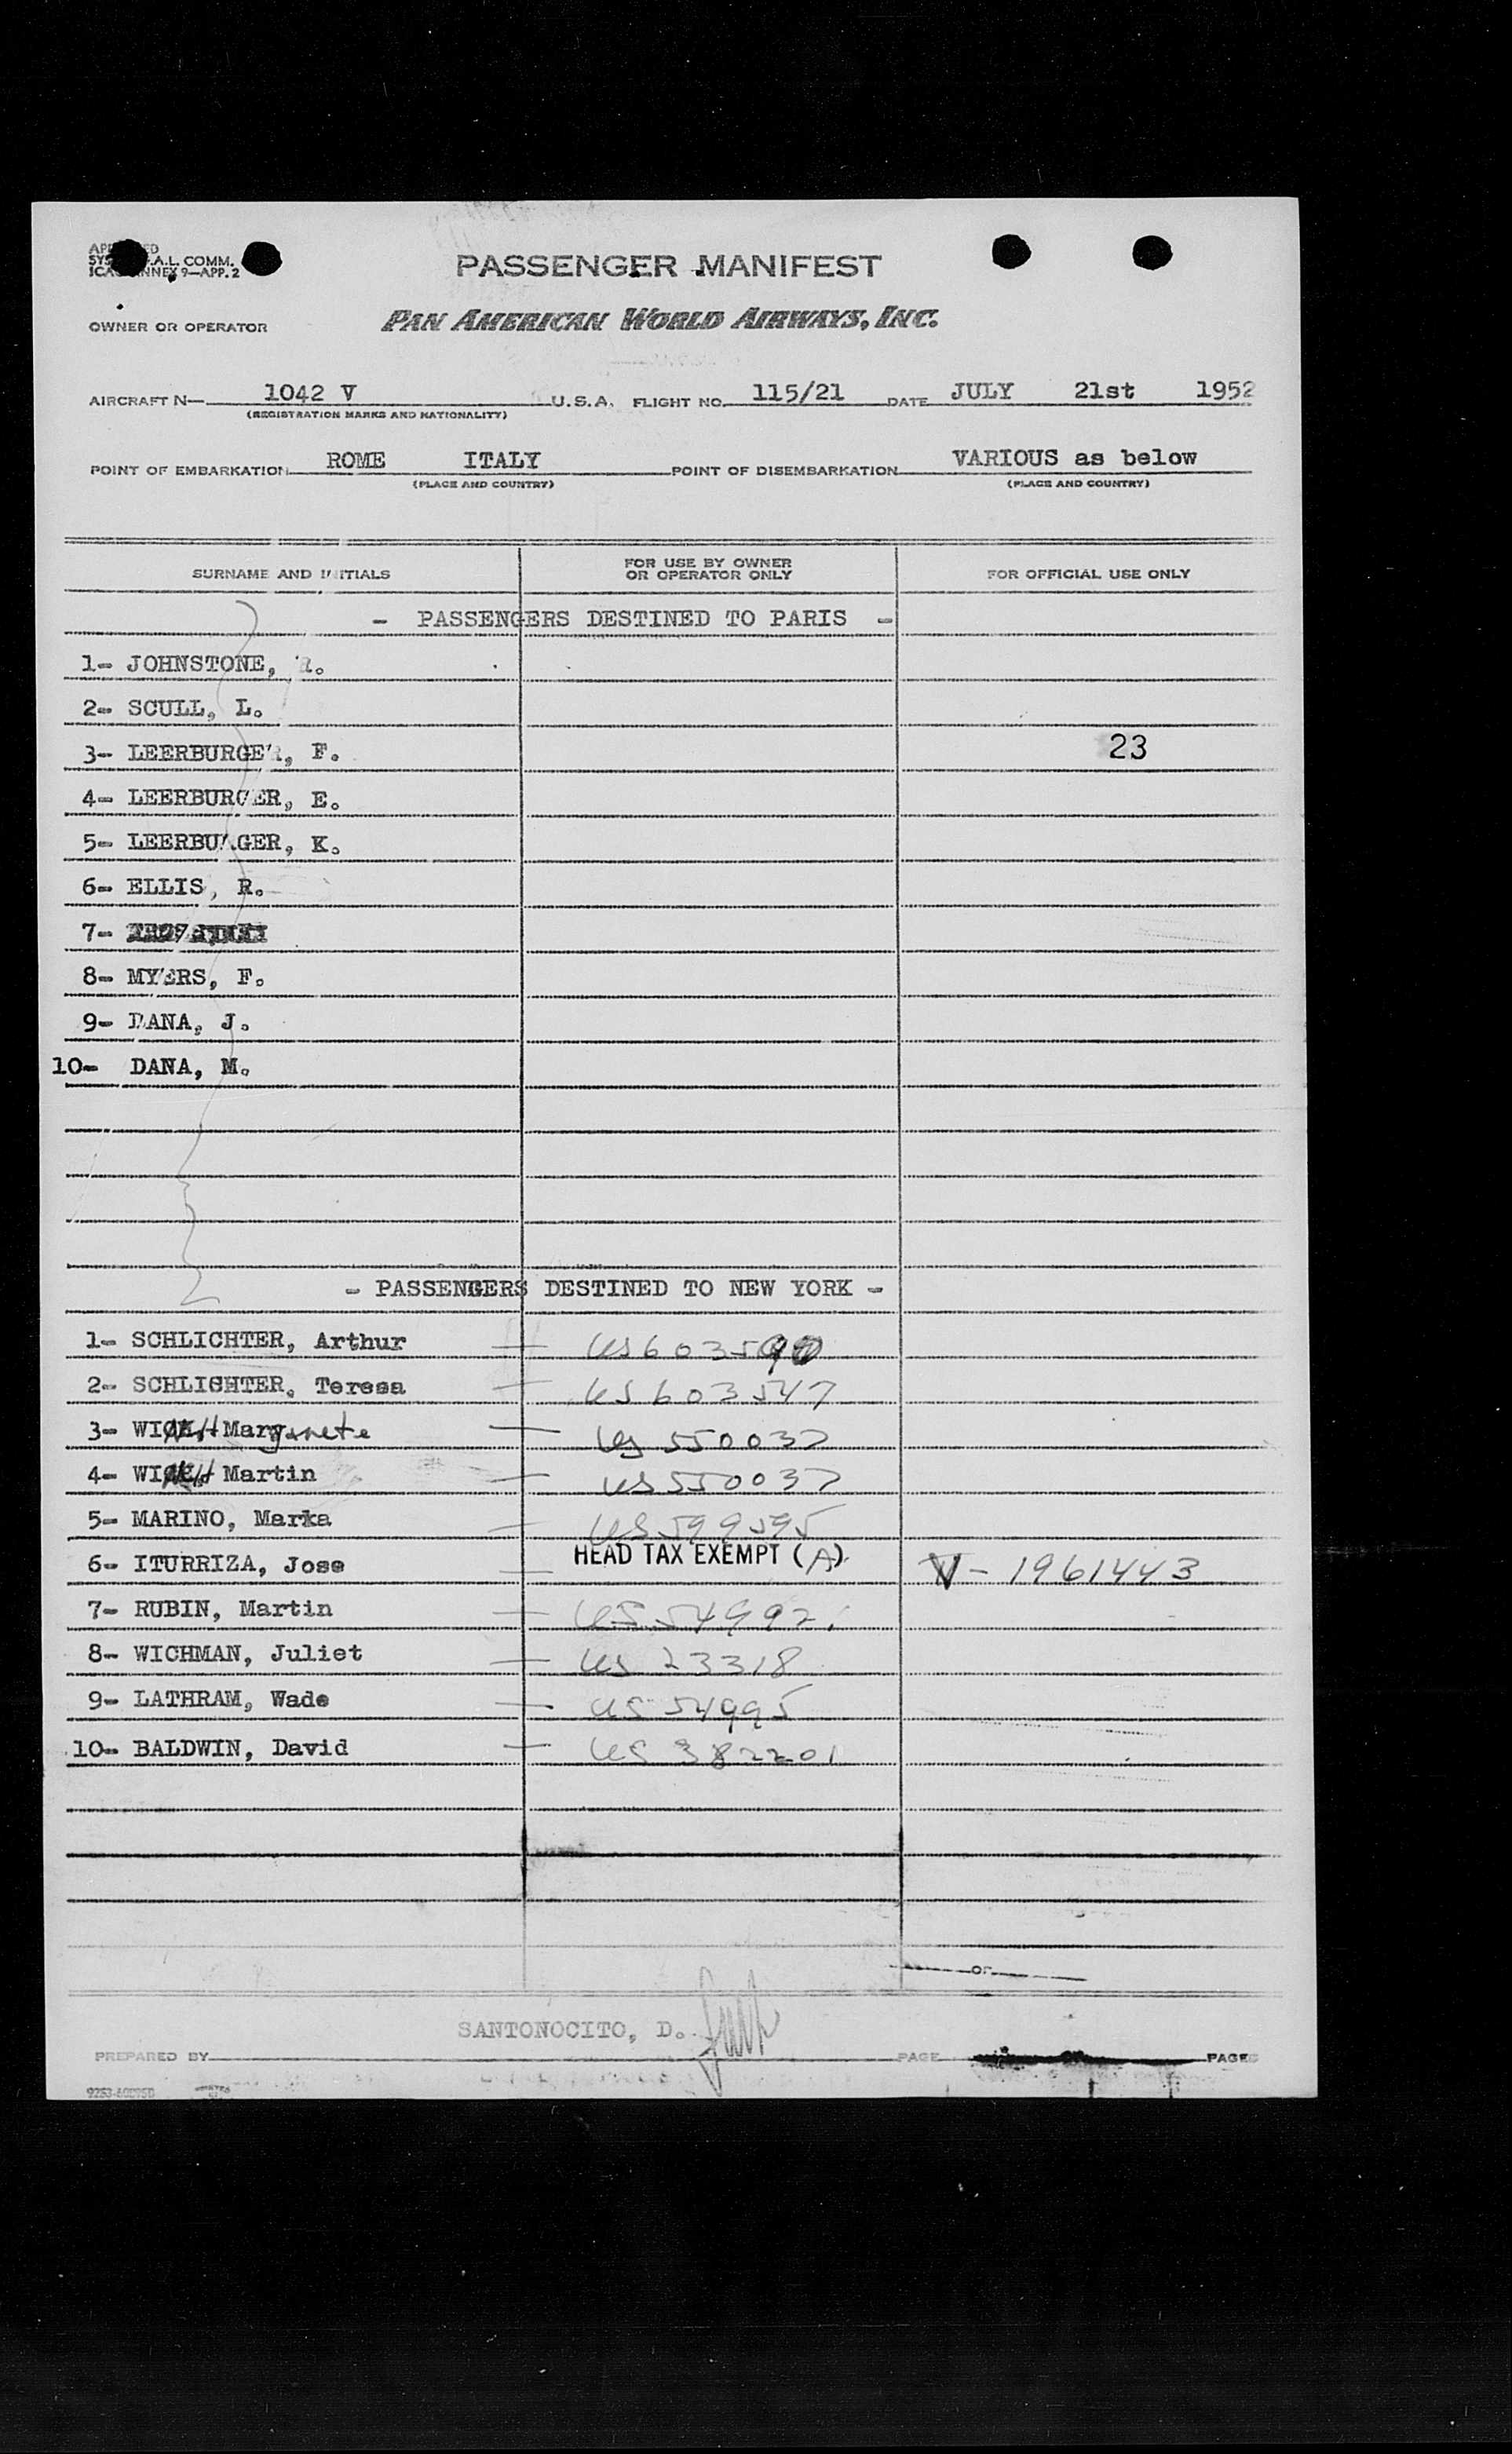 PASSENGER MANIFEST
F.A.L. COMM.
ANNEX 9—APP. 2
OWNER OR OPERATOR PAN AMERICAN WORLD AIRWAYS, INC.
AIRCRAFT N— 1042 V U.S.A. FLIGHT NO. 115/21 DATE JULY 21st 1952
(REGISTRATION MARKS AND NATIONALITY)
POINT OF EMBARKATION ROME ITALY POINT OF DISEMBARKATION VARIOUS as below
(PLACE AND COUNTRY) (PLACE AND COUNTRY)
SURNAME AND INITIALS FOR USE BY OWNER OR OPERATOR ONLY FOR OFFICIAL USE ONLY
- PASSENGERS DESTINED TO PARIS -
1- JOHNSTONE, R.
2- SCULL, L.
3- LEERBURGER, F. 23
4- LEERBURGER, E.
5- LEERBURGER, K.
6- ELLIS, R.
7-
8- MYERS, F.
9- DANA, J.
10- DANA, M.
- PASSENGERS DESTINED TO NEW YORK -
1- SCHLICHTER, Arthur — US
2- SCHLICHTER, Teresa — US 603547
3- Margarete — US 550037
4- Martin — US 550037
5- MARINO, Marka — US 599595
6- ITURRIZA, Jose — HEAD TAX EXEMPT (A) V-1961443
7- RUBIN, Martin — US
8- WICHMAN, Juliet — US 23318
9- LATHRAM, Wade — US 54995
10- BALDWIN, David — US 382201
OF
SANTONOCITO, D.
PREPARED BY PAGE PAGES